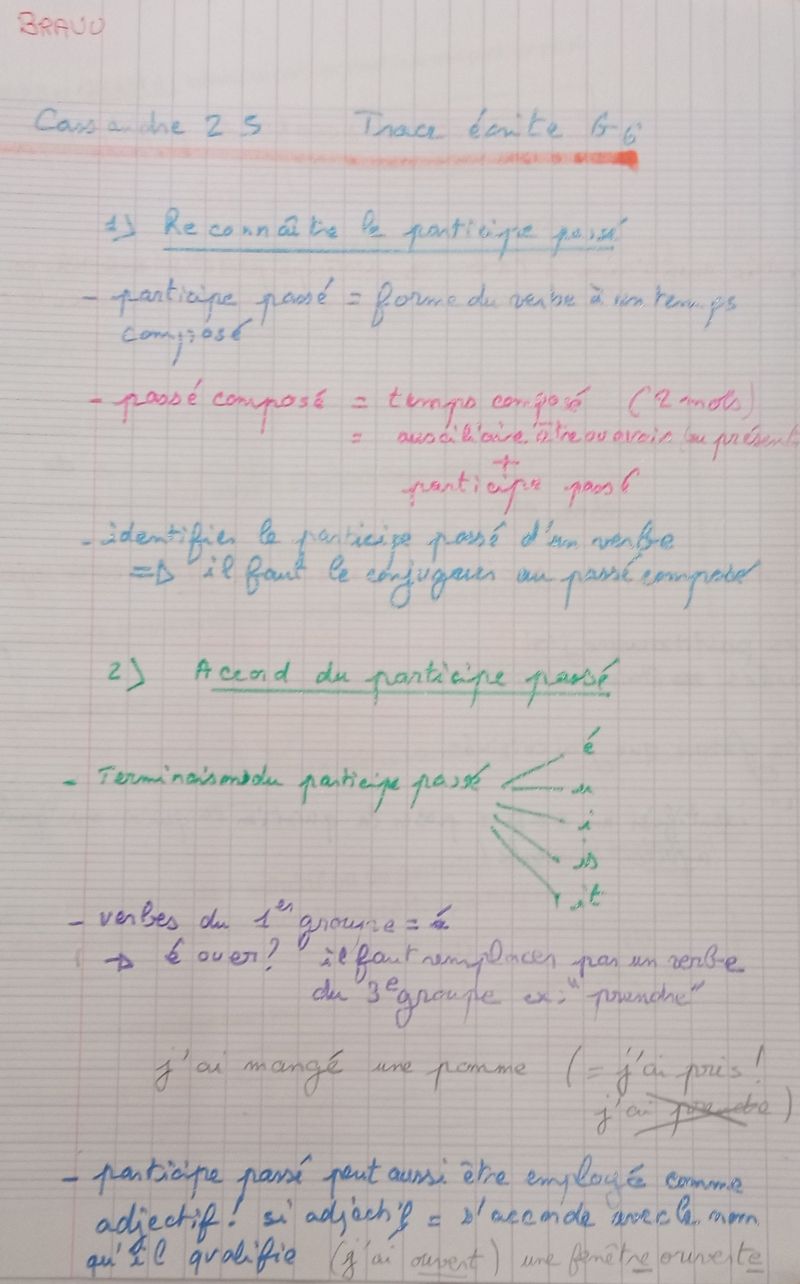 BRAVO
Cassandre 25 Trace écrite G6
1) Reconnaître le participe passé
- participe passé = forme du verbe à un temps
composé
- passé composé = temps composé (2 mots)
= auxiliaire être ou avoir (au présent)
+
participe passé
- identifier le participe passé d'un verbe
=> il faut le conjuguer au passé composé
2) Accord du participe passé
é
- Terminaisons du participe passé u
i
is
it
- verbes du 1er groupe = é
→ é ou er? il faut remplacer par un verbe
du 3e groupe ex: "prendre"
j'ai mangé une pomme (= j'ai pris!
j'ai prendre)
- participe passé peut aussi être employé comme
adjectif! si adjectif = s'accorde avec le nom
qu'il qualifie (j'ai ouvert) une fenêtre ouverte